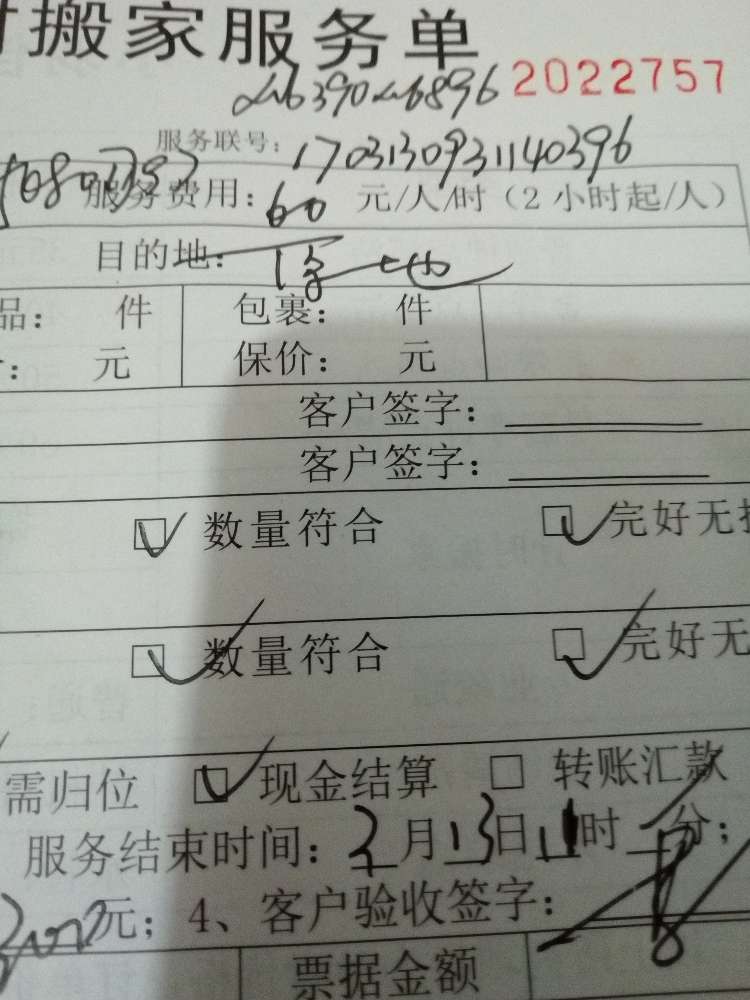 时搬家服务单
2022757
服务联号: 1703130931140396
服务费用: 60 元/人/时(2小时起/人)
目的地:
品: 件 包裹: 件
: 元 保价: 元
客户签字:
客户签字:
数量符合 完好无
数量符合 完好无
需归位 现金结算 转账汇款
服务结束时间: 3月13日11时 分;
元; 4、客户验收签字:
票据金额